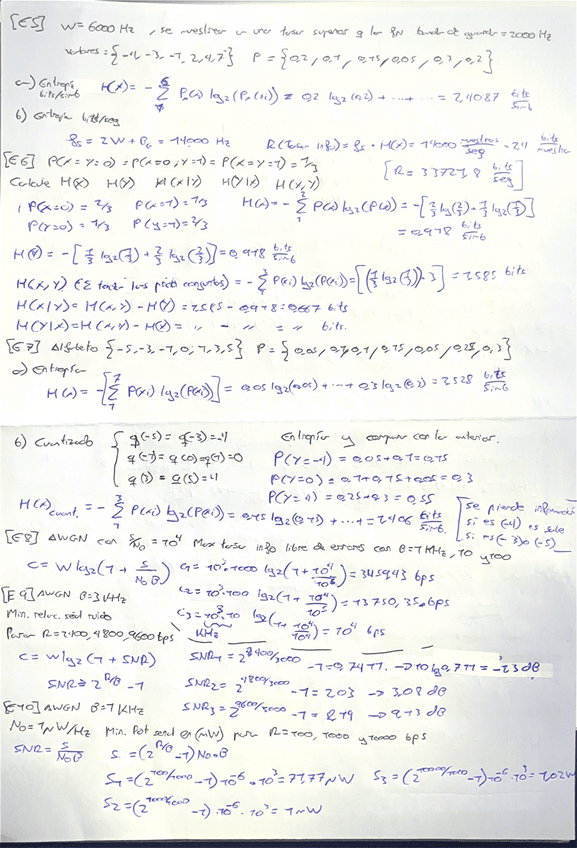 [E5] W = 6000 Hz, se muestrea a una tasa superior a la fN banda de guarda = 2000 Hz
valores = {-4, -3, -1, 2, 4, 7} P = {0,2, 0,1, 0,15, 0,05, 0,3, 0,2}
a) Entropía bits/simb H(x) = - Σ P(xi) log2(P(xi)) = 0,2 log2(0,2) + ... + ... = 2,4087 bits/simb
b) Entropía bits/seg
fs = 2W + PG = 14000 Hz R(Tasa info) = fs · H(x) = 14000 muestras/seg · 2,4 bits/muestra
[R = 33721,8 bits/seg]
[E6] P(x=y=0) = P(x=0, y=1) = P(x=y=1) = 1/3
Calcule H(x) H(y) H(x|y) H(y|x) H(x,y)
P(x=0) = 2/3 P(x=1) = 1/3 H(x) = - Σ P(xi) log2(P(xi)) = -[2/3 log2(2/3) + 1/3 log2(1/3)]
P(y=0) = 1/3 P(y=1) = 2/3 = 0,918 bits/simb
H(Y) = -[1/3 log2(1/3) + 2/3 log2(2/3)] = 0,918 bits/simb
H(x,y) = - Σ P(xi) log2(P(xi)) = [(1/3 log2(1/3)) · 3] = 1,585 bits
H(x|y) = H(x,y) - H(Y) = 1,585 - 0,918 = 0,667 bits
H(Y|x) = H(x,y) - H(x) = " - " = " bits.
[E7] Alfabeto {-5, -3, -1, 0, 1, 3, 5} P = {0,05, 0,1, 0,1, 0,15, 0,05, 0,25, 0,3}
a) Entropía
H(x) = -[Σ P(xi) log2(P(xi))] = 0,05 log2(0,05) + ... + 0,3 log2(0,3) = 2,528 bits/simb
b) Cuantizado q(-5) = q(-3) = -4 Entropía y comparar con la anterior.
q(-1) = q(0) = q(1) = 0 P(Y=-4) = 0,05 + 0,1 = 0,15
q(3) = q(5) = 4 P(Y=0) = 0,1 + 0,15 + 0,05 = 0,3
P(Y=4) = 0,25 + 0,3 = 0,55
H(x)cuant. = - Σ P(xi) log2(P(xi)) = 0,15 log2(0,15) + ... = 1,406 bits/simb.
[Se pierde información si es (-4) no sabe si es (-3) o (-5)]
[E8] AWGN con S/N0 = 10^4 Max tasa info libre de errores con B = 1 KHz, 10 y 100
C = W log2(1 + S/(N0 B)) C1 = 10^3 · 1000 log2(1 + 10^4/10^6) = 34543 bps
C2 = 10^3 · 100 log2(1 + 10^4/10^5) = 13750,35 bps
C3 = 10^3 · 10 log2(1 + 10^4/10^4) = 10^4 bps
KHz
[E9] AWGN B = 3 KHz
Min. relac. señal ruido
Para R = 2400, 4800, 9600 bps
C = W log2(1 + SNR) SNR1 = 2^(2400/3000) - 1 = 0,7411. -> 10 log 0,7411 = -1,3 dB
SNR = 2^(R/B) - 1 SNR2 = 2^(4800/3000) - 1 = 2,03 -> 3,08 dB
SNR3 = 2^(9600/3000) - 1 = 8,19 -> 9,13 dB
[E10] AWGN B = 1 KHz
N0 = 1 µW/Hz Min. Pot señal en (mW) para R = 100, 1000 y 10000 bps
SNR = S/(N0 B) S = (2^(R/B) - 1) N0 · B
S1 = (2^(100/1000) - 1) · 10^-6 · 10^3 = 71,77 µW S3 = (2^(10000/1000) - 1) · 10^-6 · 10^3 = 1,02 W
S2 = (2^(1000/1000) - 1) · 10^-6 · 10^3 = 1 mW